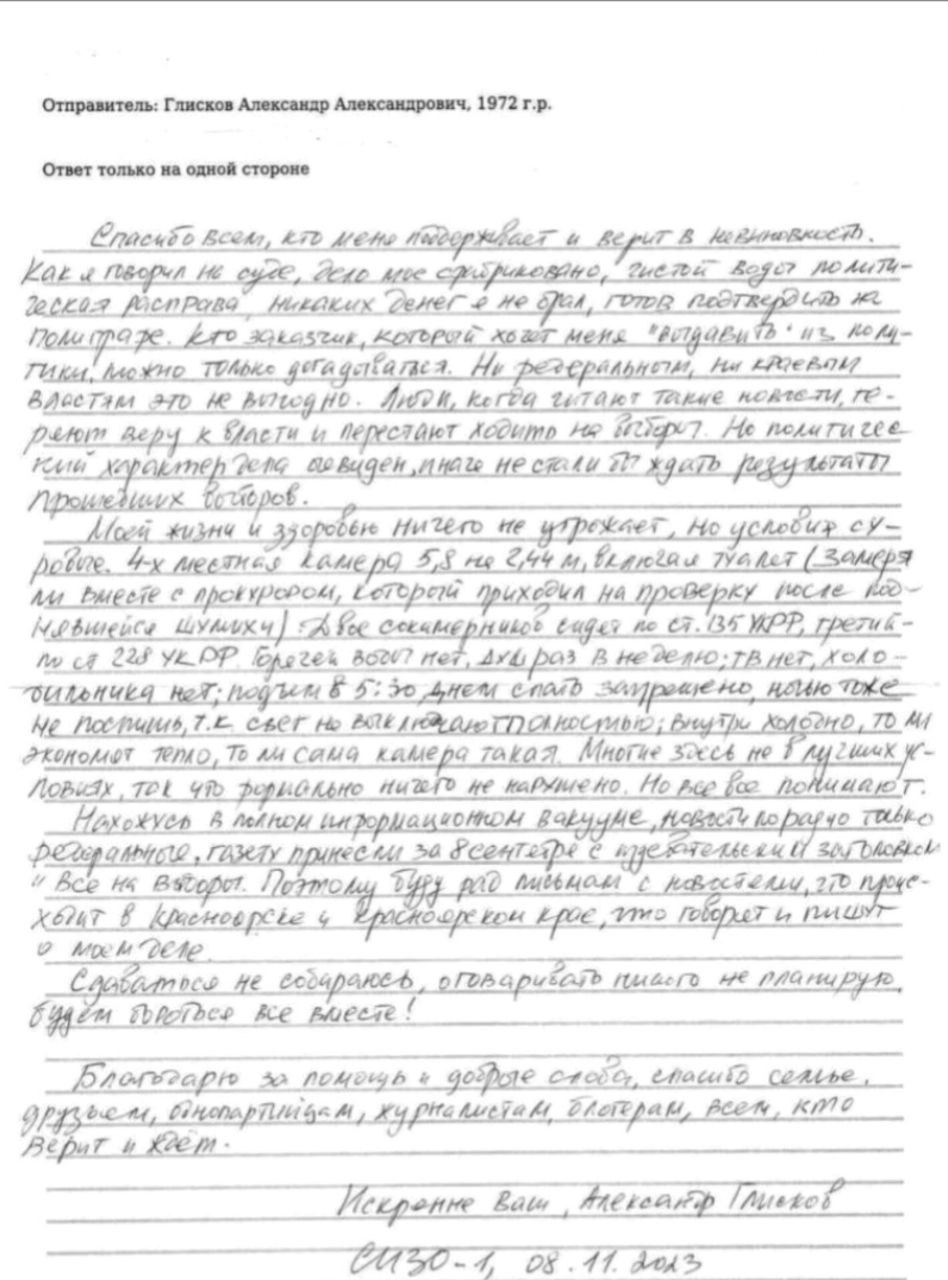 Отправитель: Глисков Александр Александрович, 1972 г.р.
Ответ только на одной стороне
Спасибо всем, кто меня поддерживает и верит в невиновность.
Как я говорил на суде, дело мое сфабриковано, чистой воды полити-
ческая расправа, никаких денег я не брал, готов подтвердить на
полиграфе. Кто заказчик, который хочет меня "выдавить" из поли-
тики, можно только догадываться. Ни федеральным, ни краевым
властям это не выгодно. Люди, когда читают такие новости, те-
ряют веру к власти и перестают ходить на выборы. Но политичес-
кий характер дела очевиден, иначе не стали бы ждать результаты
прошедших выборов.
Моей жизни и здоровью ничего не угрожает, но условия су-
ровые. 4-х местная камера 5,8 на 2,44 м, включая туалет (замеря
ли вместе с прокурором, который приходил на проверку после под-
нявшейся шумихи). Двое сокамерников сидят по ст. 135 УКРФ, третий -
по ст 228 УК РФ. Горячей воды нет, душ раз в неделю; ТВ нет, холо-
дильника нет; подъем в 5:30, днем спать запрещено, ночью тоже
не поспишь, т.к. свет не выключают полностью; внутри холодно, то ли
экономят тепло, то ли сама камера такая. Многие здесь не в лучших ус-
ловиях, так что формально ничего не нарушено. Но все все понимают.
Нахожусь в полном информационном вакууме, новости по радио только
федеральные, газету принесли за 8 сентября с издевательским заголовком
"Все на выборы. Поэтому буду рад письмам с новостями, что проис-
ходит в Красноярске и Красноярском крае, что говорят и пишут
о моем деле.
Сдаваться не собираюсь, оговаривать никого не планирую,
будем бороться все вместе!
Благодарю за помощь и добрые слова, спасибо семье,
друзьям, однопартийцам, журналистам, блогерам, всем, кто
верит и ждёт.
Искренне Ваш, Александр Глисков
СИЗО-1, 08.11.2023